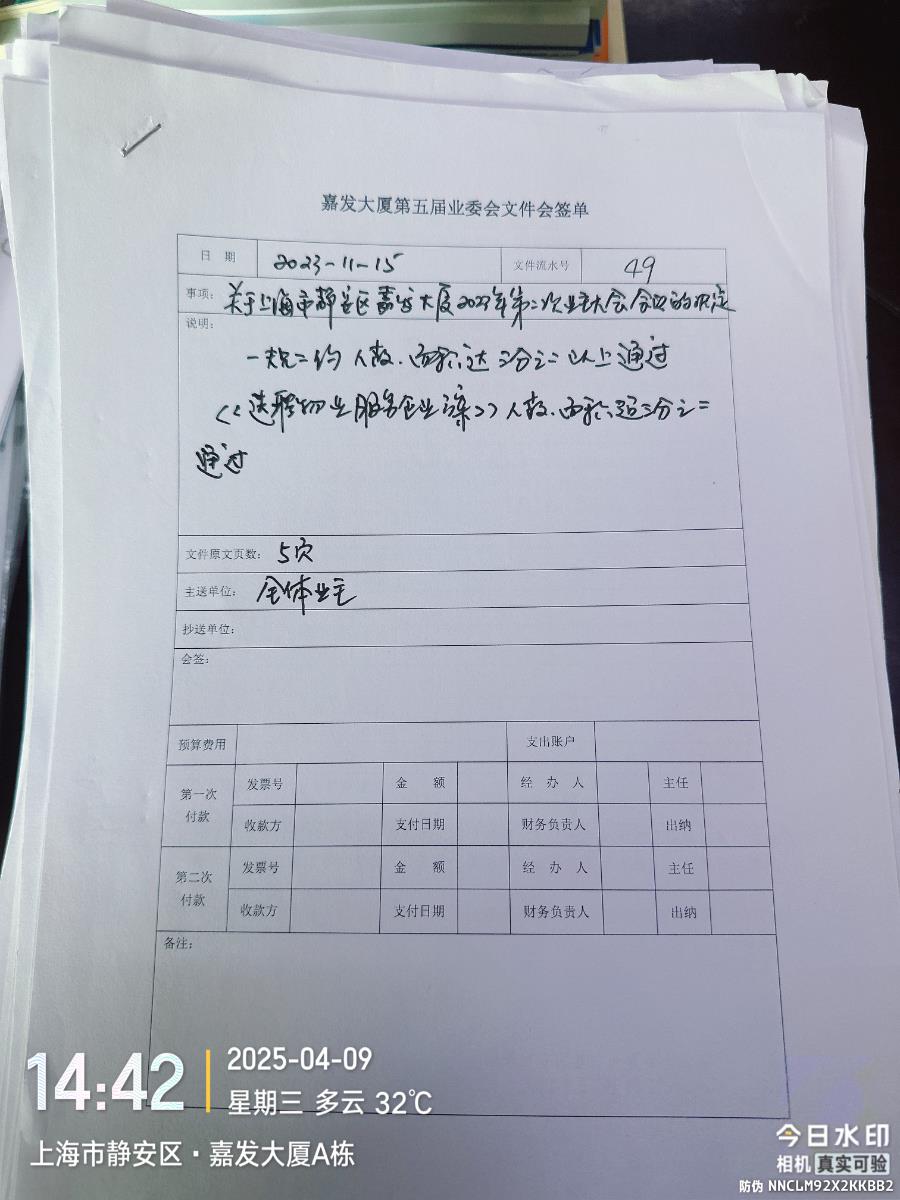 嘉发大厦第五届业委会文件会签单
日 期 2023-11-15 文件流水号 49
事项: 关于上海市静安区嘉发大厦2023年第二次业主大会会议的决定
说明:
一规二约 人数、面积达三分之二以上通过
《选聘物业服务企业方案》人数、面积超三分之二
通过
文件原文页数: 5页
主送单位: 全体业主
抄送单位:
会签:
预算费用 支出账户
第一次付款 发票号 金 额 经 办 人 主任
收款方 支付日期 财务负责人 出纳
第二次付款 发票号 金 额 经 办 人 主任
收款方 支付日期 财务负责人 出纳
备注:
14:42 2025-04-09
星期三 多云 32℃
上海市静安区·嘉发大厦A栋
今日水印
相机 真实可验
防伪 NNCLM92X2KKBB2